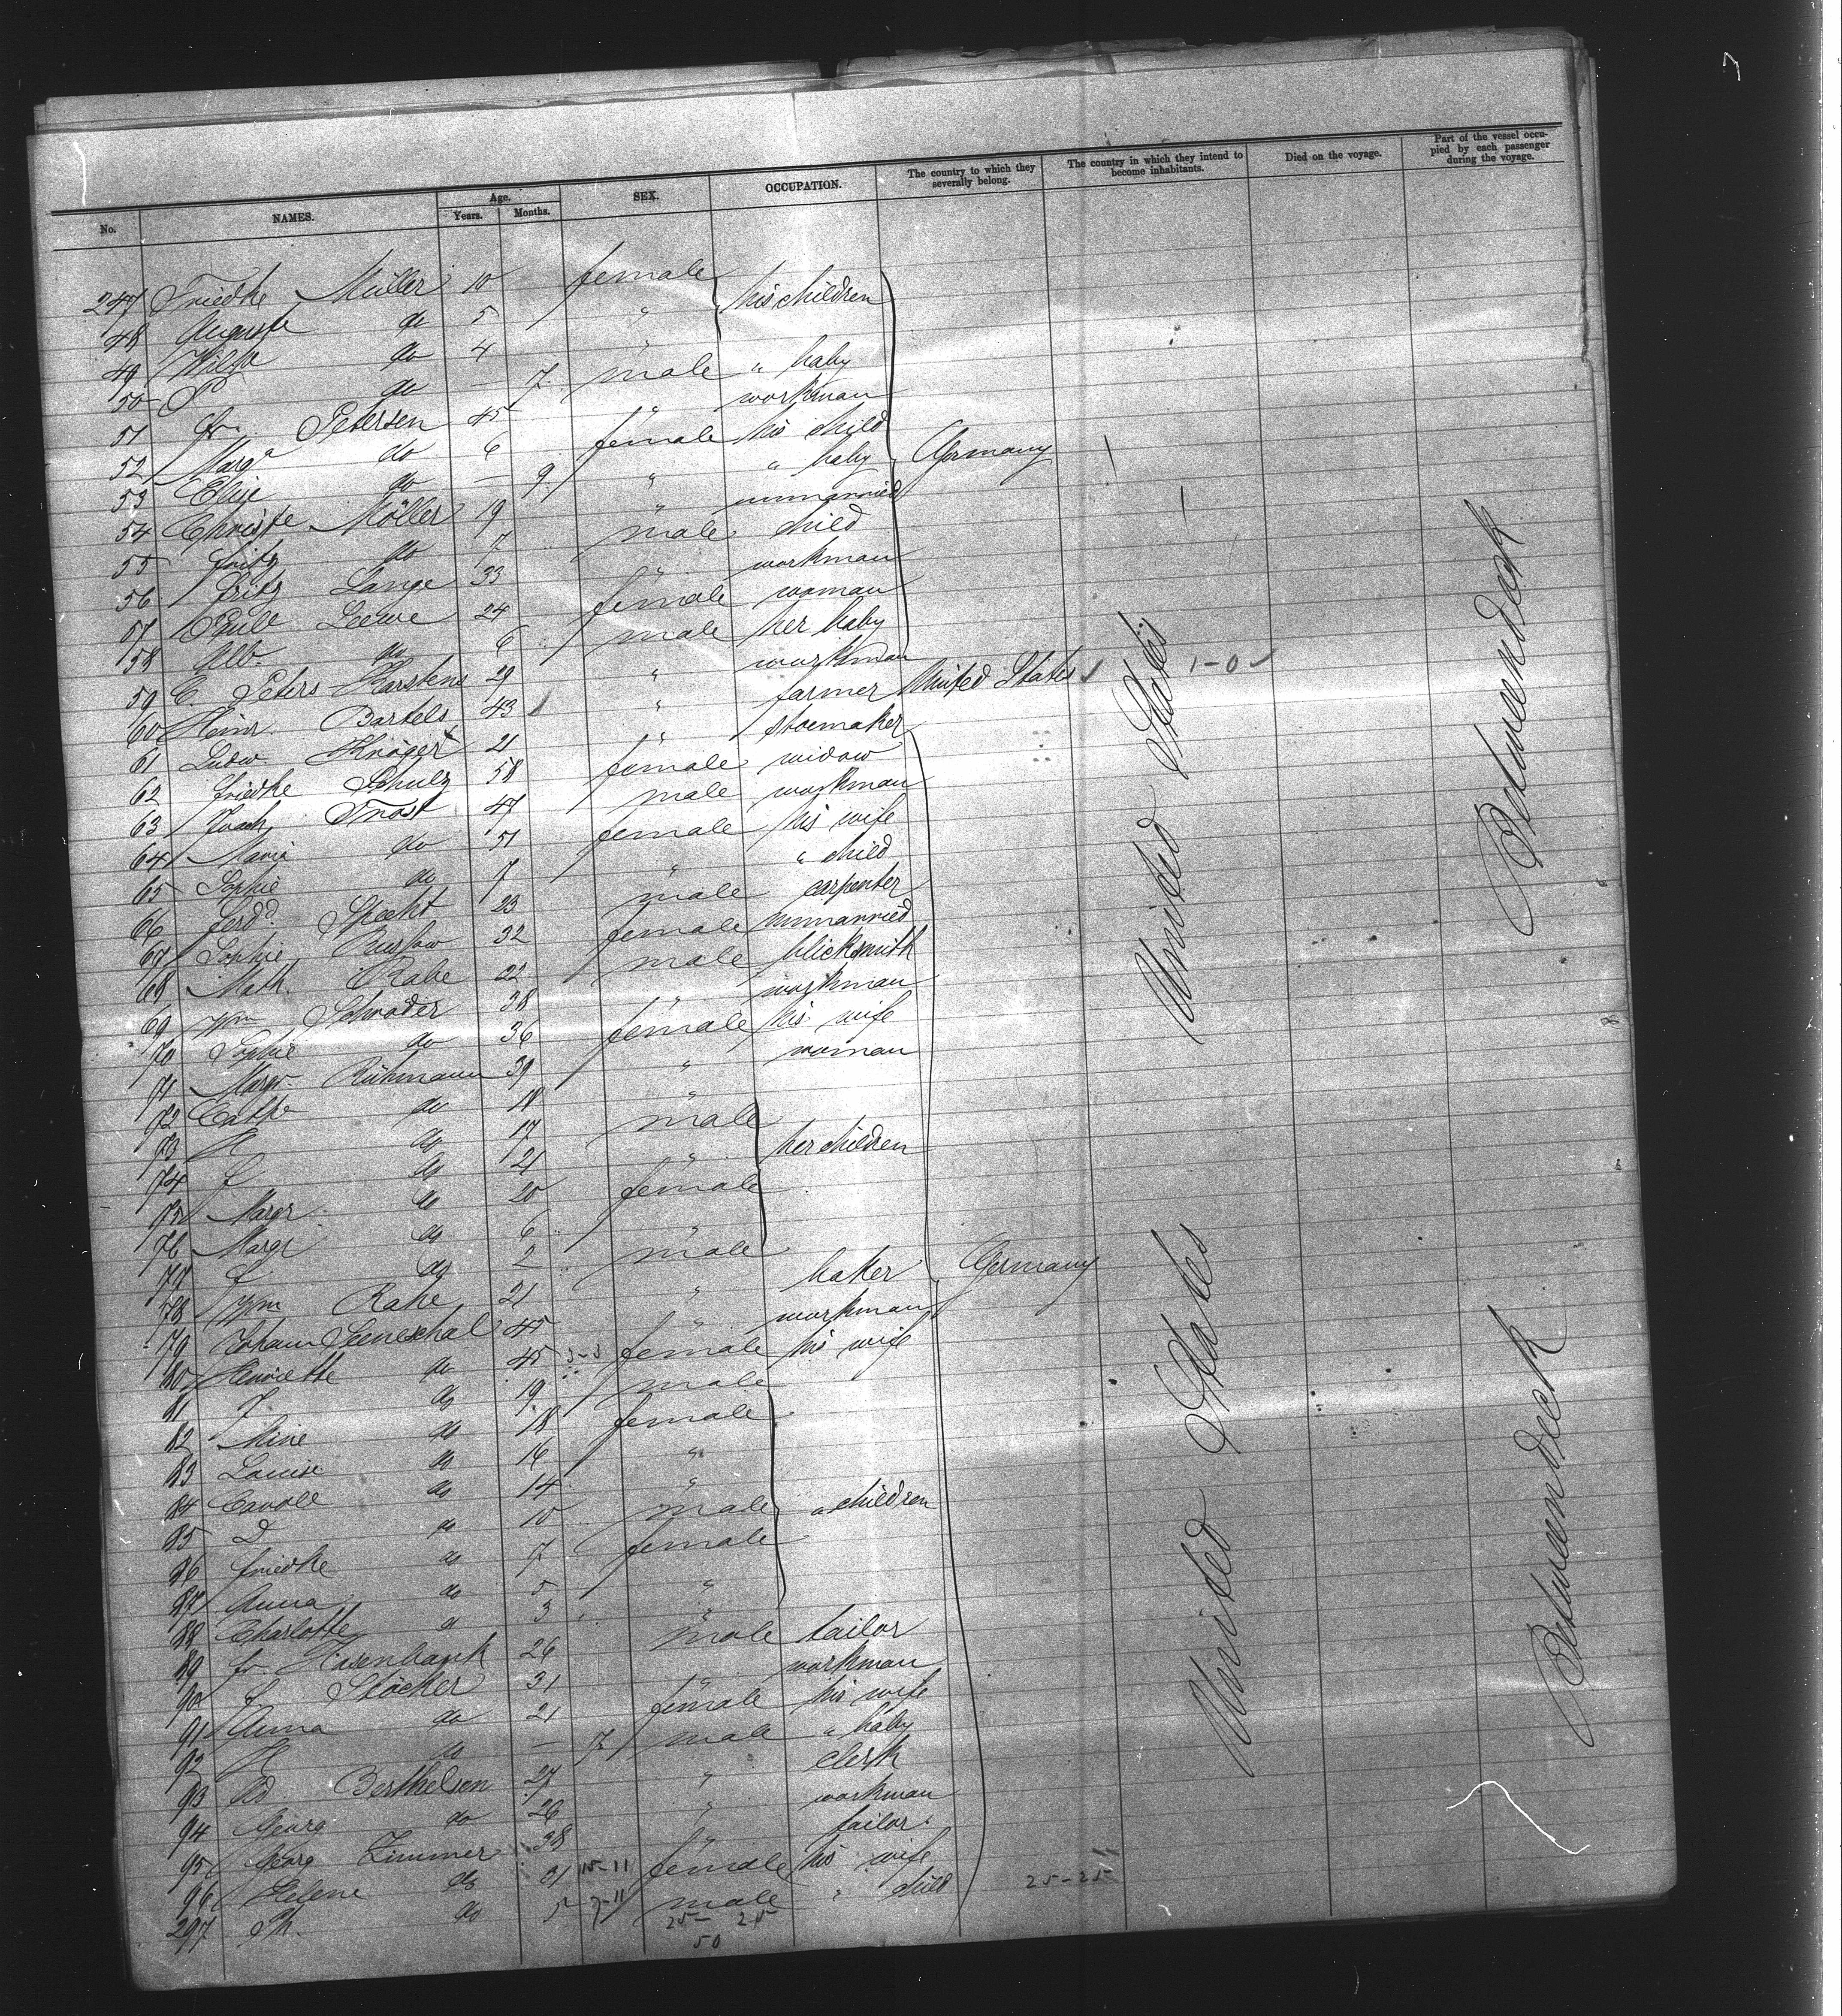 No. NAMES. Age. Years. Months. SEX. OCCUPATION. The country to which they severally belong. The country in which they intend to become inhabitants. Died on the voyage. Part of the vessel occupied by each passenger during the voyage.
247 Friedke Müller 10 female his children
48 Auguste do 5 "
49 Wilh do 4 "
50 P do — 7 male " baby
51 Fr. Petersen 45 " workman
52 Marg a do 6 female his child
53 Elise do — 9 " " baby Germany
54 Christe Möller 19 " unmarried
55 Fritz do 7 male child
56 Fritz Lange 33 " workman
57 Leewe 24 female woman
58 Alb. do 6 male her baby
59 C. Peters Karstens 29 " workman
60 Heinr. Bartels 43 " farmer United States 1-0
61 Ludw. Kröger 21 " shoemaker
62 Friedke Schulz 58 female widow
63 Joach. Trost 47 male workman
64 Marie do 51 female his wife
65 Sophie do 7 " " child
66 Ferdd. Specht 23 male carpenter
67 Sophie Buslow 32 female unmarried
68 Math. Rabe 22 male blicksmith
69 Wm Schröder 38 " workman
70 Sophie do 36 female his wife
71 Margr. Rühmann 39 " woman
72 Cathe do 18 "
73 H do 17 male her children
74 J do 21 "
75 Margr. do 20 female
76 Margr do 6 "
77 J do 2 male
78 Wm Rahe 21 " baker Germany
79 Johann Seneschal 45 " workman
80 Henriette do 45 3-3 female his wife
81 J. do 19 male
82 Mine do 18 female
83 Louise do 16 "
84 Carole do 14 "
85 D do 10 male " children
86 Friedke do 7 female
87 Anna do 5 "
88 Charlotte do 3 "
89 Fr. Hasenbank 26 male tailor
90 J Stöcker 31 " workman
91 Anna do 21 female his wife
92 H do — 7 male " baby
93 Ad. Berthelsen 27 " clerk
94 Georg do 26 " workman
95 Georg Zimmer 38 " tailor
96 Helene do 31 15-11 female his wife
297 Ph. do 5 7-11 male " child 25-25
25- 25
50
United States
United States
Betweendeck
Betweendeck